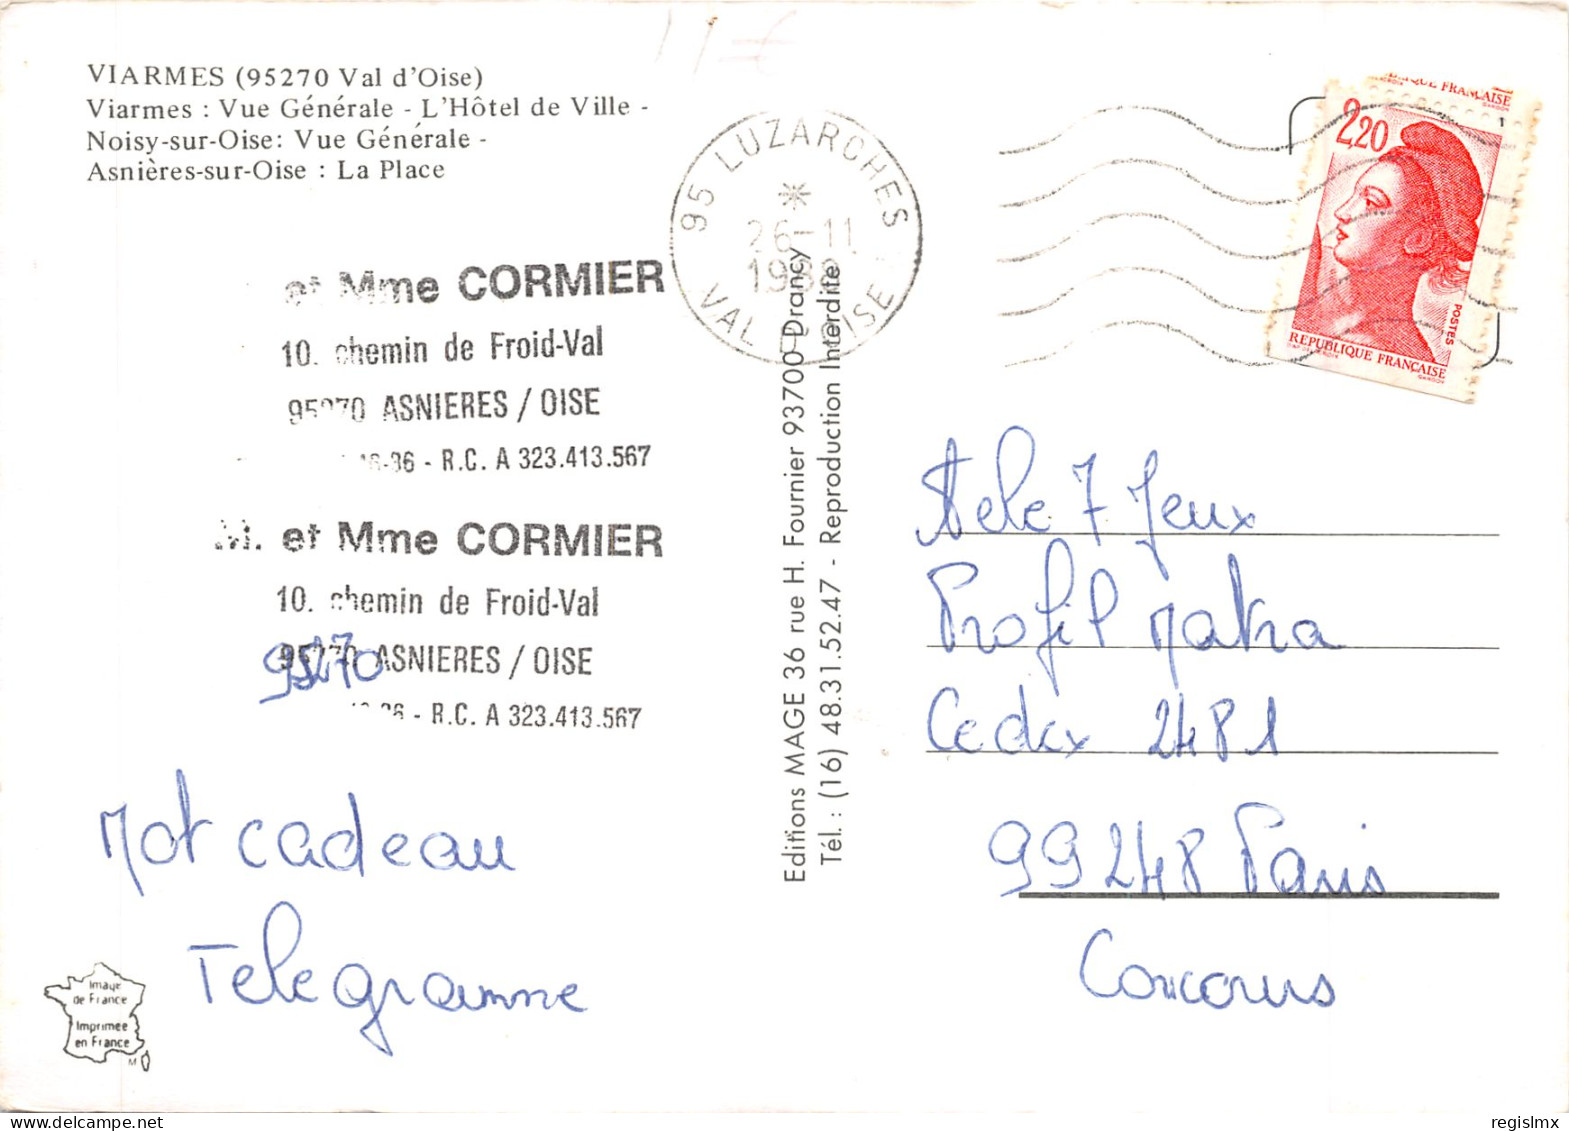 VIARMES (95270 Val d'Oise)
Viarmes : Vue Générale - L'Hôtel de Ville -
Noisy-sur-Oise: Vue Générale -
Asnières-sur-Oise : La Place
et Mme CORMIER
10. chemin de Froid-Val
95270 ASNIERES / OISE
-36 - R.C. A 323.413.567
M. et Mme CORMIER
10. chemin de Froid-Val
95270 ASNIERES / OISE
95270
- R.C. A 323.413.567
Mot cadeau
Telegramme
Image
de France
Imprimée
en France
M
95 LUZARCHES
26-11
1988
VAL D'OISE
Editions MAGE 36 rue H. Fournier 93700 Drancy
Tél. : (16) 48.31.52.47 - Reproduction Interdite
REPUBLIQUE FRANÇAISE
GANDON
1
2,20
POSTES
REPUBLIQUE FRANÇAISE
GANDON
Tele 7 Jeux
Profil Matra
Cedex 2481
99248 Paris
Concours
regislmx